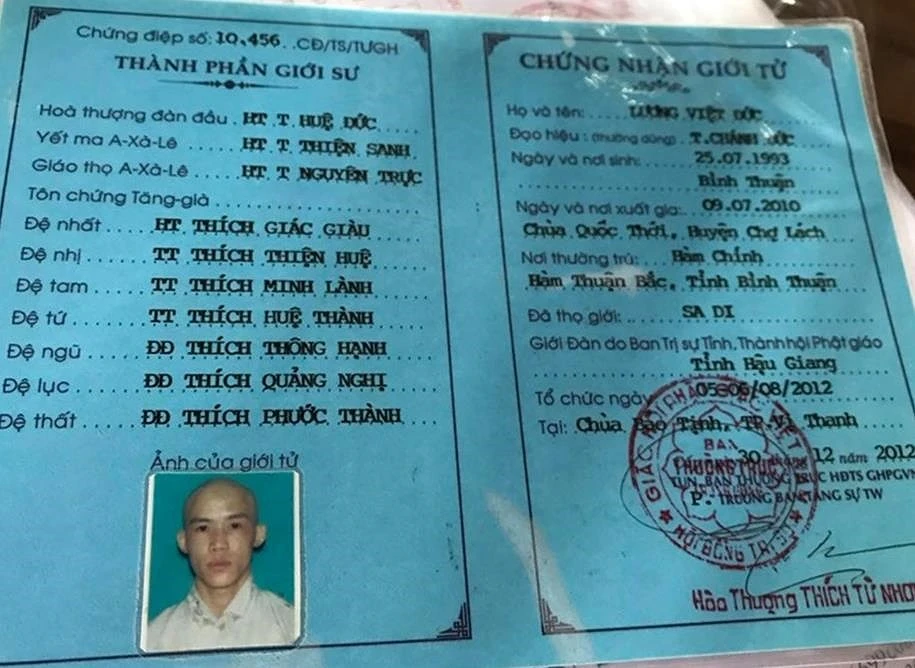 Chứng điệp số: 10.456..CĐ/TS/TƯGH
THÀNH PHẦN GIỚI SƯ
Hoà thượng đàn đầu . HT T HUỆ ĐỨC
Yết ma A-Xà-Lê ..... HT T THIỆN SANH
Giáo thọ A-Xà-Lê ..... HT T NGUYÊN TRỰC
Tôn chứng Tăng-già
Đệ nhất ..... HT THÍCH GIÁC GIÀU
Đệ nhị ..... TT THÍCH THIỆN HUỆ
Đệ tam ..... TT THÍCH MINH LÀNH
Đệ tứ ..... TT THÍCH HUỆ THÀNH
Đệ ngũ ..... ĐĐ THÍCH THÔNG HẠNH
Đệ lục ..... ĐĐ THÍCH QUẢNG NGHỊ
Đệ thất ..... ĐĐ THÍCH PHƯỚC THÀNH
Ảnh của giới tử
CHỨNG NHẬN GIỚI TỬ
Họ và tên: LƯƠNG VIỆT ĐỨC
Đạo hiệu : (thường dùng) T.CHÁNH ĐỨC
Ngày và nơi sinh: 25.07.1993
Bình Thuận
Ngày và nơi xuất gia: 09.07.2010
Chùa Quốc Thới, Huyện Chợ Lách
Nơi thường trú: Hàm Chính
Hàm Thuận Bắc, Tỉnh Bình Thuận
Đã thọ giới: SA DI
Giới Đàn do Ban Trị sự Tỉnh, Thành hội Phật giáo
Tỉnh Hậu Giang
Tổ chức ngày 05-06/08/2012
Tại: Chùa Bảo Tịnh, TP.Vị Thanh
30 tháng 12 năm 2012
TUN. BAN THƯỜNG TRỰC HĐTS GHPGVN
P. TRƯỞNG BAN TĂNG SỰ TW
BAN
THƯỜNG TRỰC
HỘI ĐỒNG TRỊ SỰ
Hòa Thượng THÍCH TỪ NHƠN